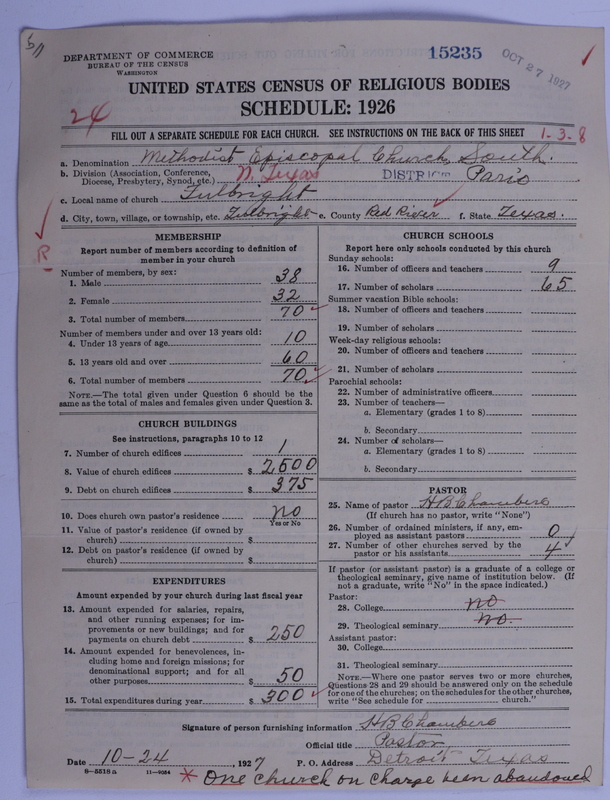 15235
OCT 27 1927
DEPARTMENT OF COMMERCE
BUREAU OF THE CENSUS
WASHINGTON
UNITED STATES CENSUS OF RELIGIOUS BODIES
SCHEDULE: 1926
24
FILL OUT A SEPARATE SCHEDULE FOR EACH CHURCH. SEE INSTRUCTIONS ON THE BACK OF THIS SHEET
1-3-8
a. Denomination Methodist Episcopal Church, South.
b. Division (Association, Conference, Diocese, Presbytery, Synod, etc.) N. Texas DISTRICT Paris
c. Local name of church Fulbright
d. City, town, village, or township, etc. Fulbright e. County Red River f. State Texas.
R
MEMBERSHIP
Report number of members according to definition of member in your church
Number of members, by sex:
1. Male 38
2. Female 32
3. Total number of members 70
Number of members under and over 13 years old:
4. Under 13 years of age 10
5. 13 years old and over 60
6. Total number of members 70
NOTE.—The total given under Question 6 should be the same as the total of males and females given under Question 3.
CHURCH BUILDINGS
See instructions, paragraphs 10 to 12
7. Number of church edifices 1
8. Value of church edifices $ 2,500
9. Debt on church edifices $ 375
10. Does church own pastor's residence? no
Yes or No
11. Value of pastor's residence (if owned by church) $
12. Debt on pastor's residence (if owned by church) $
EXPENDITURES
Amount expended by your church during last fiscal year
13. Amount expended for salaries, repairs, and other running expenses; for improvements or new buildings; and for payments on church debt $ 250
14. Amount expended for benevolences, including home and foreign missions; for denominational support; and for all other purposes $ 50
15. Total expenditures during year $ 300
CHURCH SCHOOLS
Report here only schools conducted by this church
Sunday schools:
16. Number of officers and teachers 9
17. Number of scholars 65
Summer vacation Bible schools:
18. Number of officers and teachers
19. Number of scholars
Week-day religious schools:
20. Number of officers and teachers
21. Number of scholars
Parochial schools:
22. Number of administrative officers
23. Number of teachers—
a. Elementary (grades 1 to 8)
b. Secondary
24. Number of scholars—
a. Elementary (grades 1 to 8)
b. Secondary
PASTOR
25. Name of pastor H B Chambers
(If church has no pastor, write "None")
26. Number of ordained ministers, if any, employed as assistant pastors 0
27. Number of other churches served by the pastor or his assistants 4
If pastor (or assistant pastor) is a graduate of a college or theological seminary, give name of institution below. (If not a graduate, write "No" in the space indicated.)
Pastor:
28. College no
29. Theological seminary no.
Assistant pastor:
30. College
31. Theological seminary
NOTE.—Where one pastor serves two or more churches, Questions 28 and 29 should be answered only on the schedule for one of the churches; on the schedules for the other churches, write "See schedule for church."
Signature of person furnishing information H B Chambers
Official title Pastor
Date 10-24, 1927 P. O. Address Detroit Texas
8—5518 a 11—9054
* One church on charge been abandoned